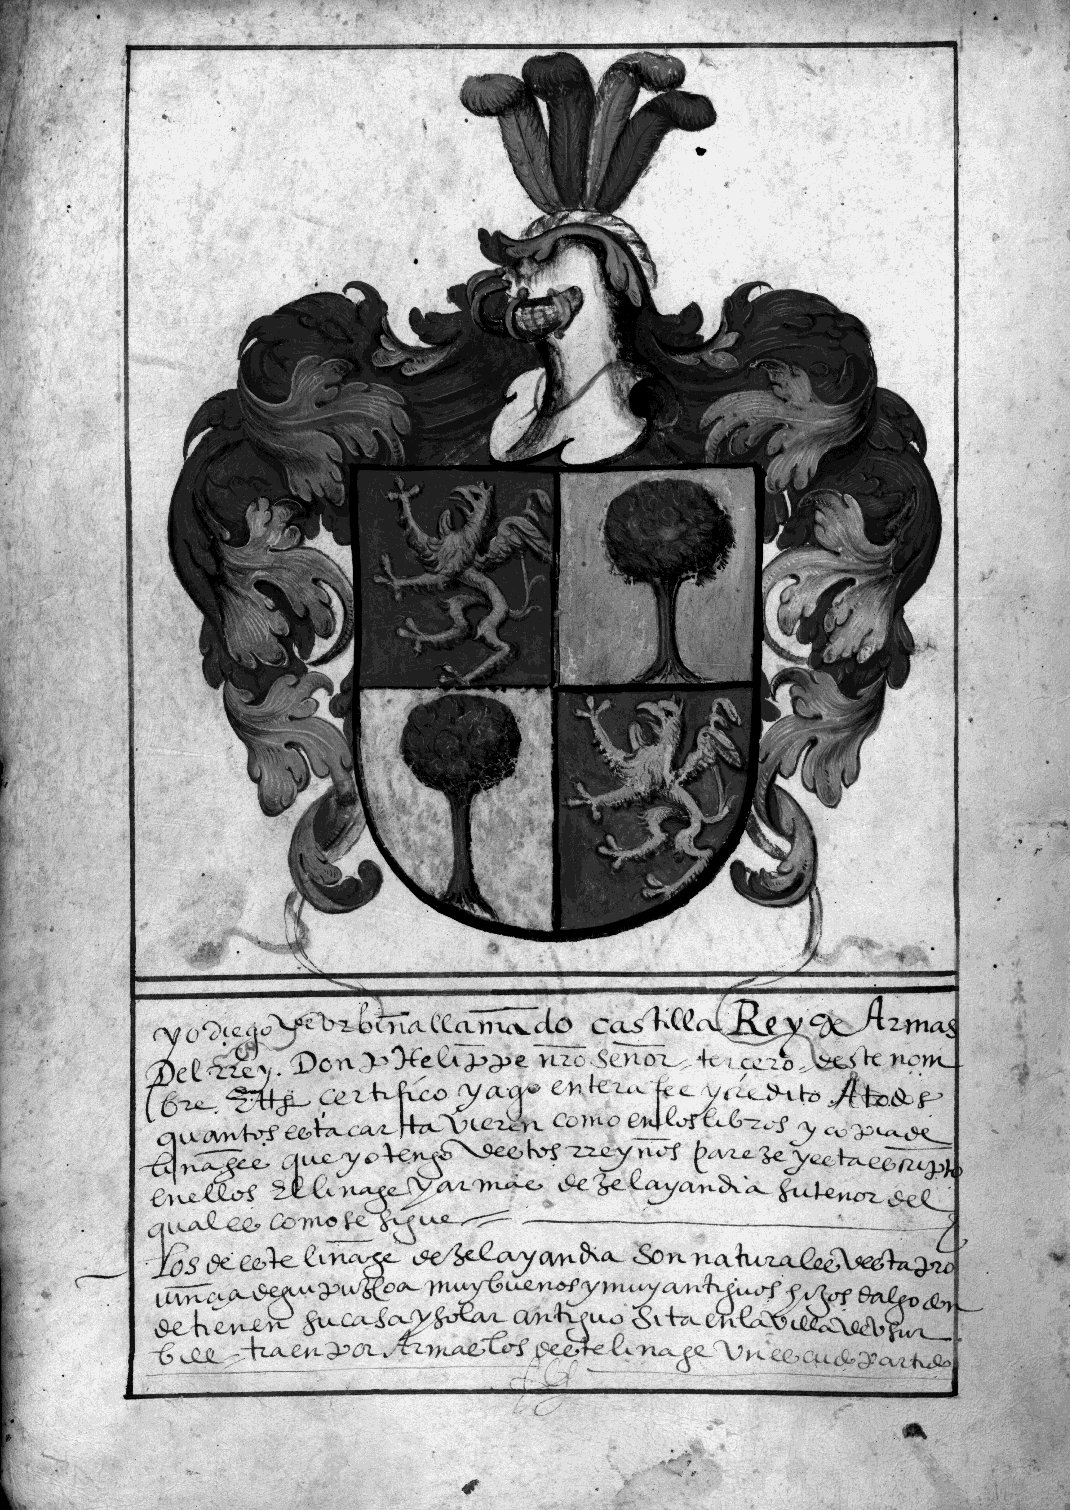 yo diego de vrbina llamado castilla Rey de Armas
Del rrey. Don phelippe nro señor tercero deste nom
bre. certifico y ago entera fee y credito A todos
quantos esta carta vieren como en los libros y copia de
linages que yo tengo destos rreynos pareze y esta escripto
en ellos El linage y armas de zelayandia su tenor del
qual es como se sigue
Los de este linage de zelayandia son naturales desta pro
uinçia de guipuzcoa muy buenos y muy antiguos hijos dalgo don
de tienen su casa y solar antiguo sita en la villa de vsur
bill traen por Armas los deste linage vn escudo partido